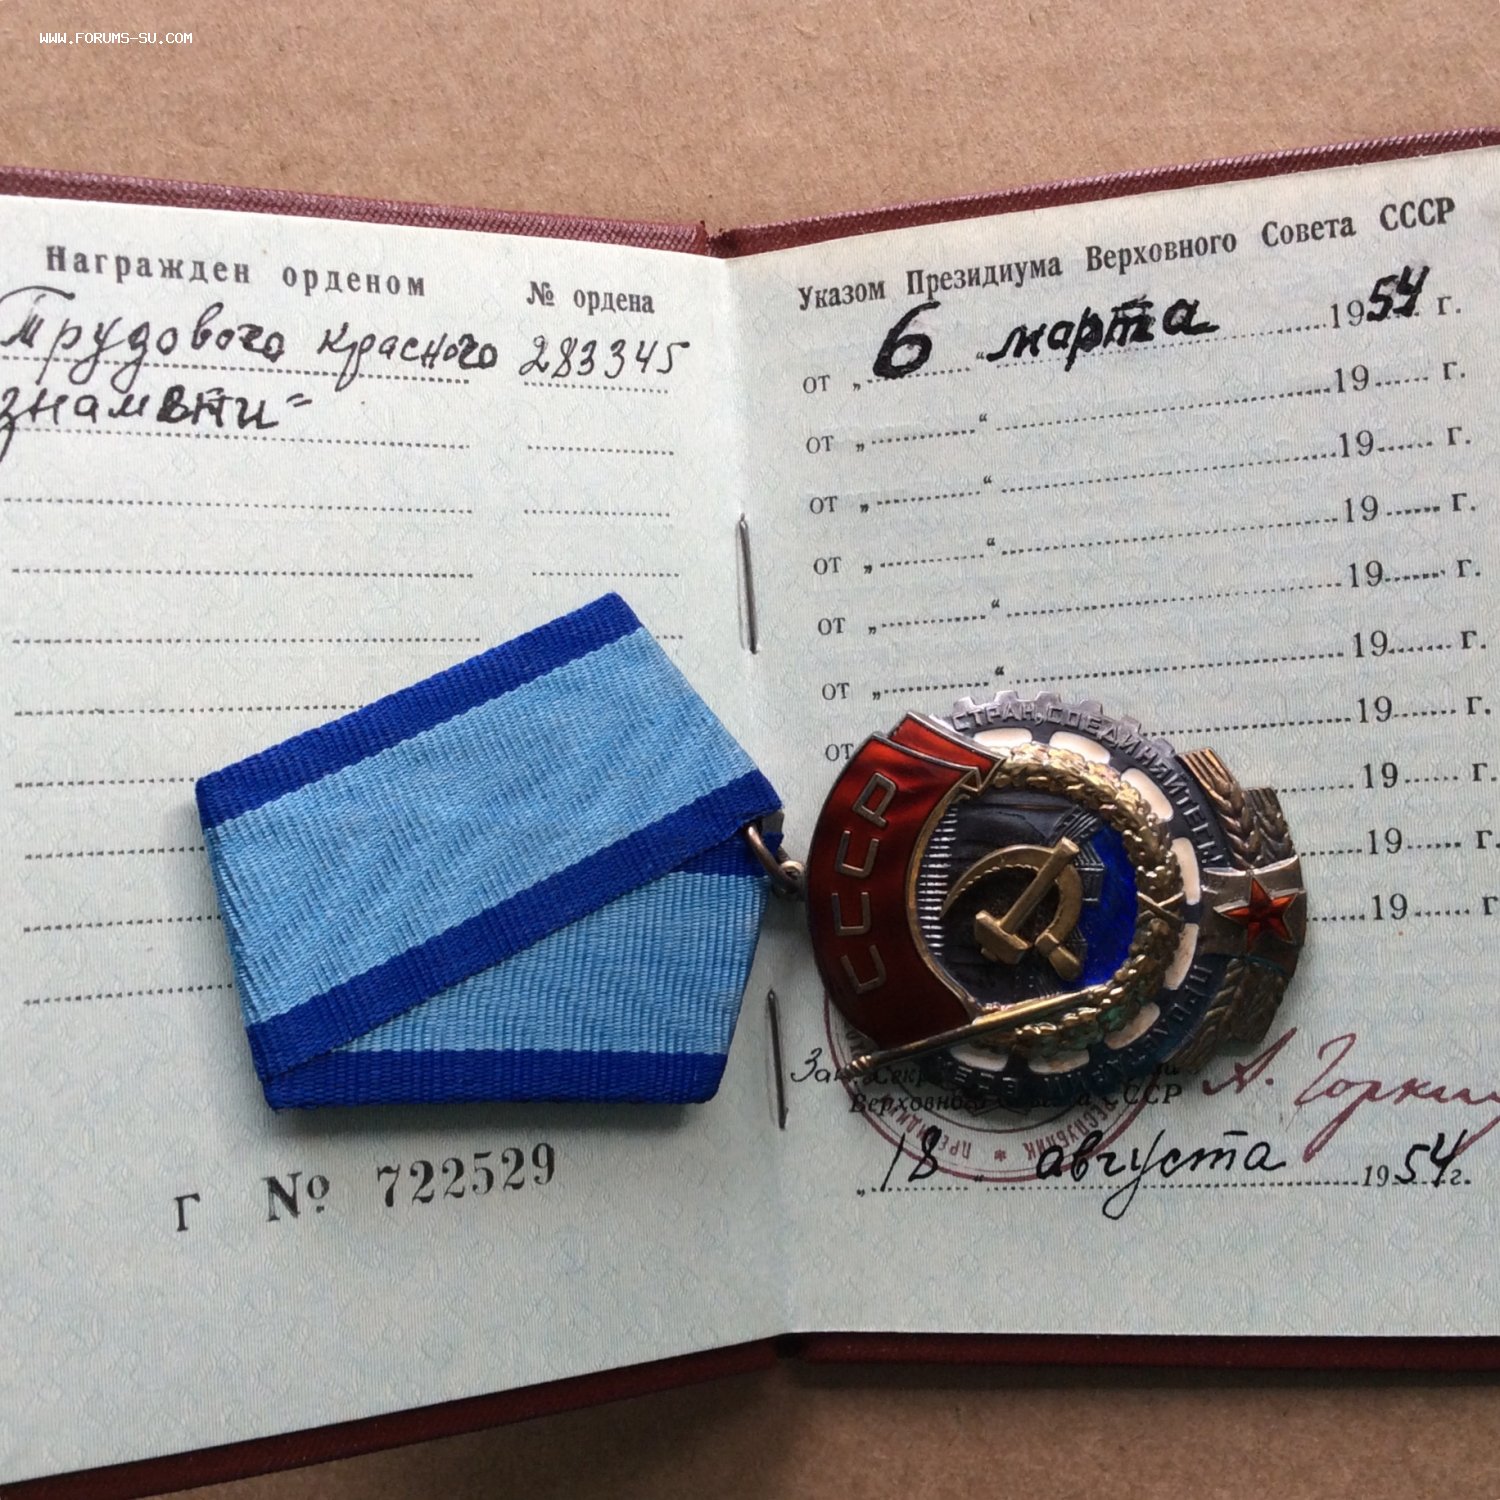 WWW.FORUMS-SU.COM
Награжден орденом
№ ордена
Трудового красного 283345
знамени=
Г № 722529
Указом Президиума Верховного Совета СССР
от „6“ марта 1954 г.
от „ “ 19 г.
от „ “ 19 г.
от „ “ 19 г.
от „ “ 19 г.
от „ “ 19 г.
от 19 г.
19 г.
19 г.
19 г
СТРАН, СОЕДИНЯЙТЕСЬ!
СССР
Верховного СССР
А. Горкин
РЕСПУБЛИК * ПРЕЗИДИ
„18“ августа 1954 г.